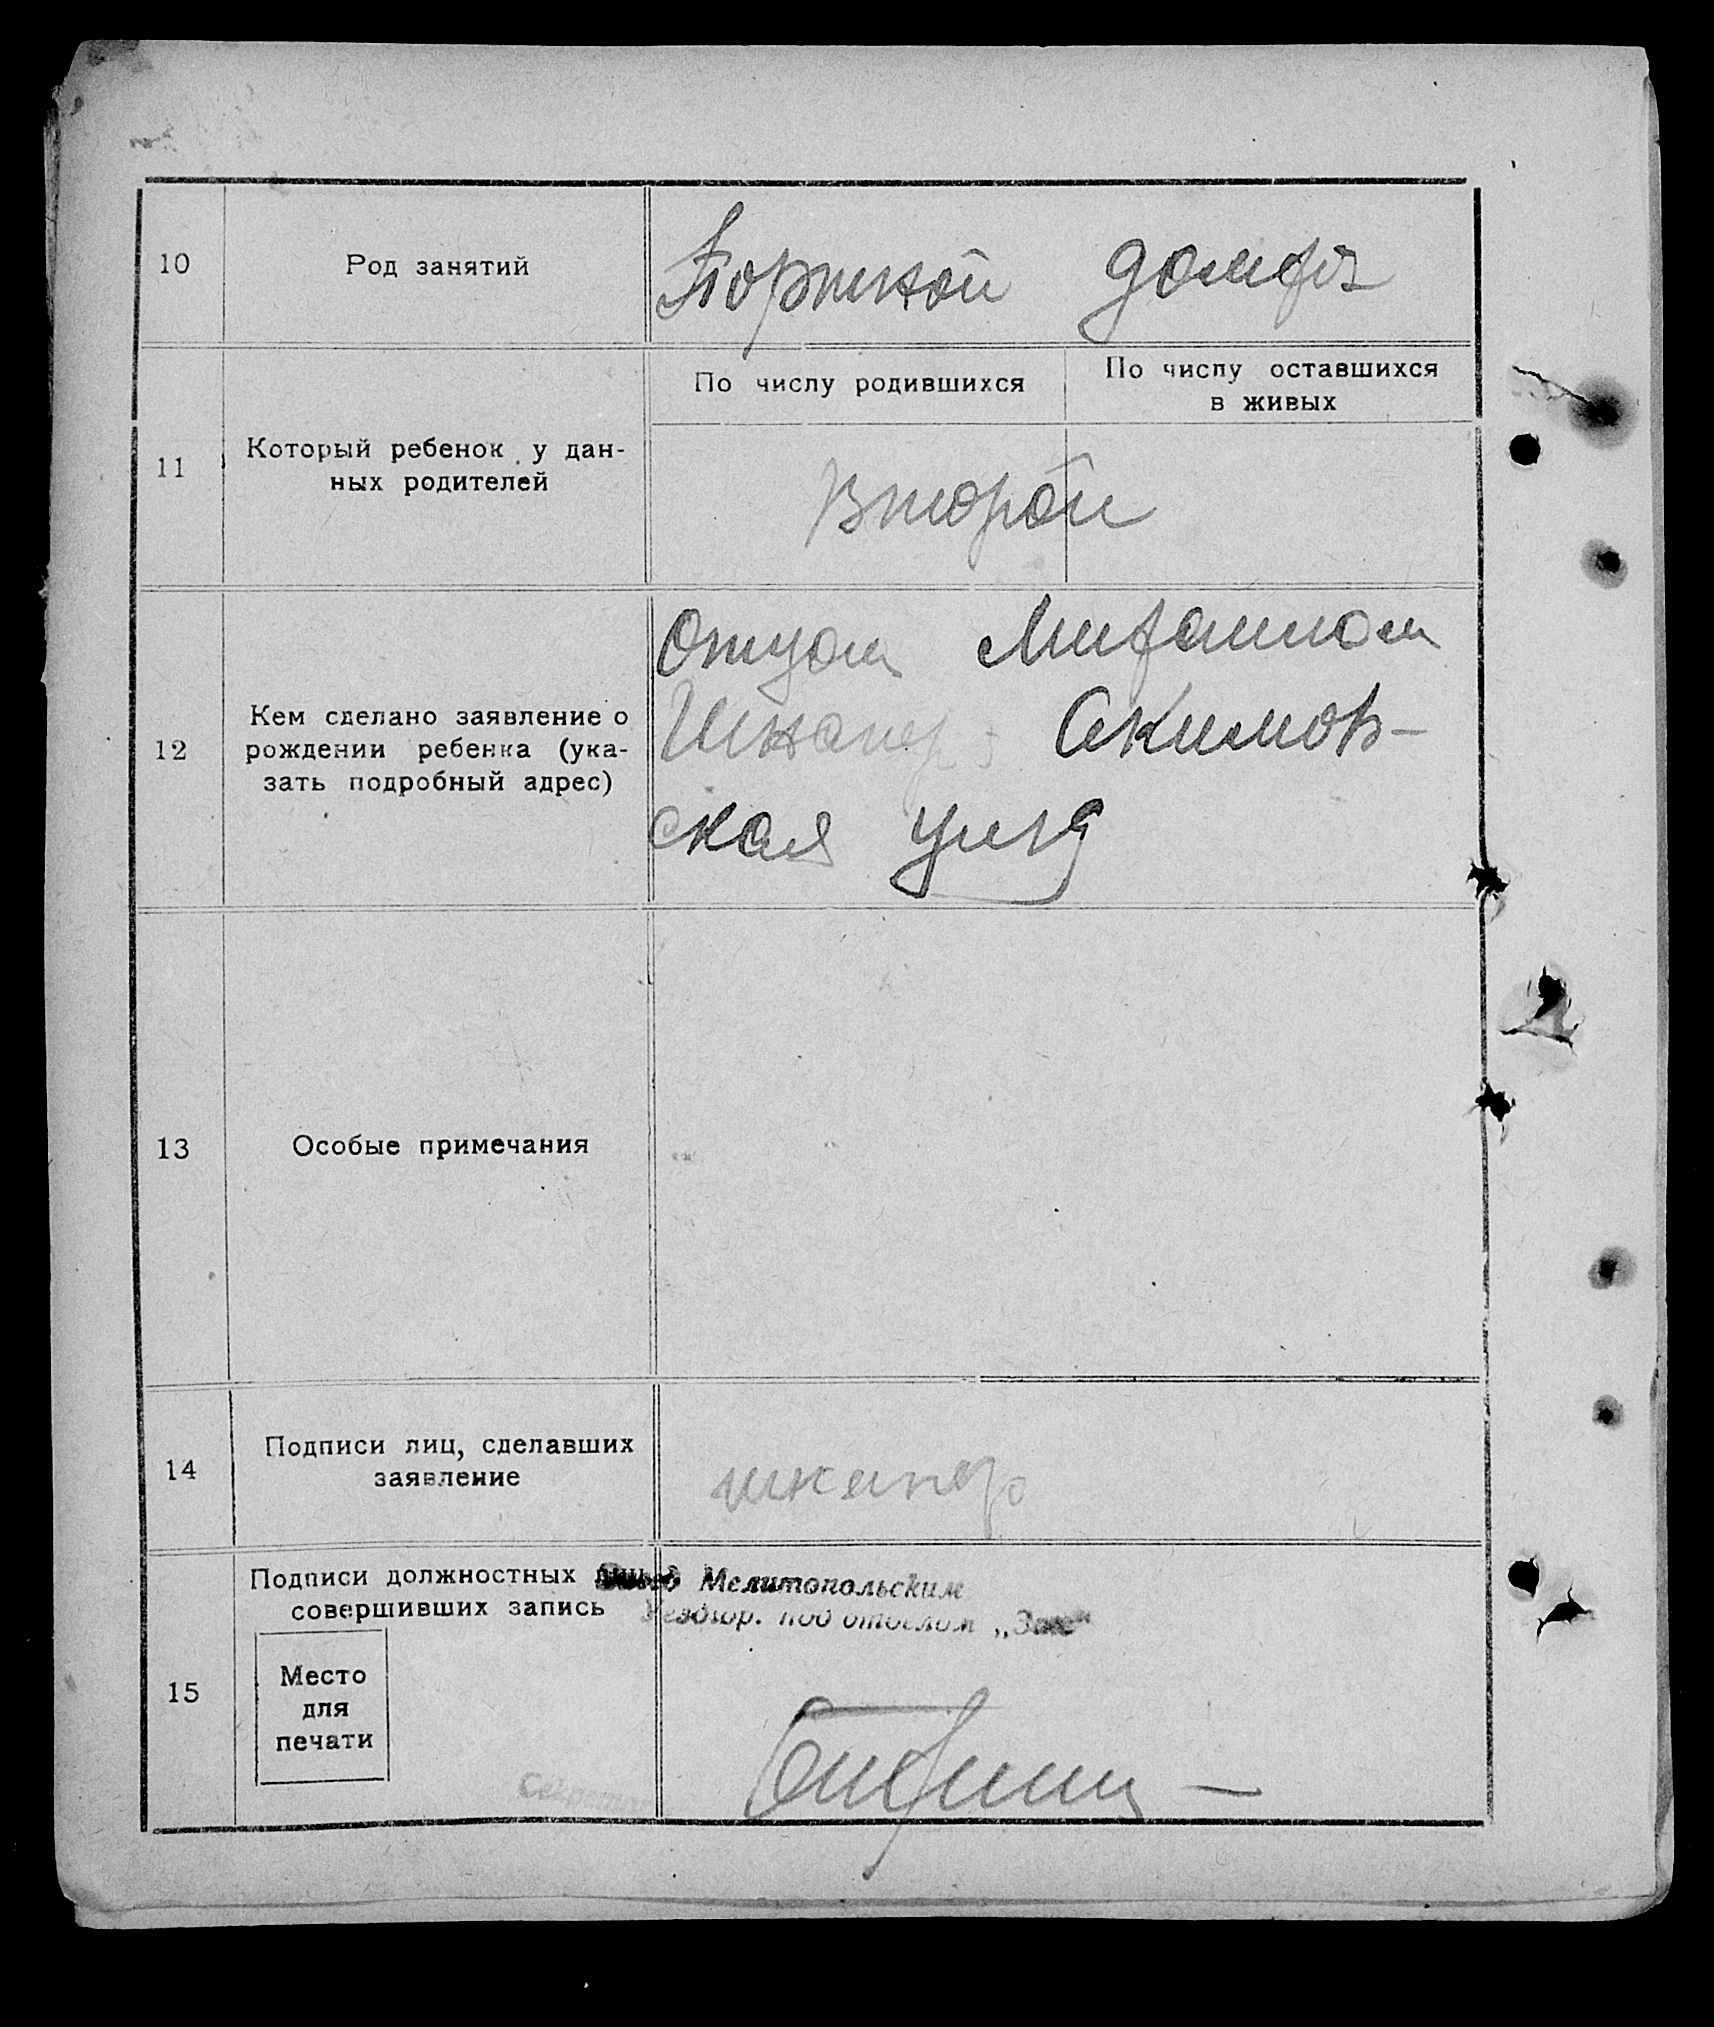 10
Род занятий
Портной домов
11
Который ребенок у дан-
ных родителей
По числу родившихся
По числу оставшихся
в живых
Второй
12
Кем сделано заявление о
рождении ребенка (ука-
зать подробный адрес)
Отцом
Шкапер Акимов-
ская
13
Особые примечания
14
Подписи лиц, сделавших
заявление
шкапер
15
Подписи должностных лиц
совершивших запись
Место
для
печати
Завед Мелитопольским
под отделом „Загс“
Секретарь